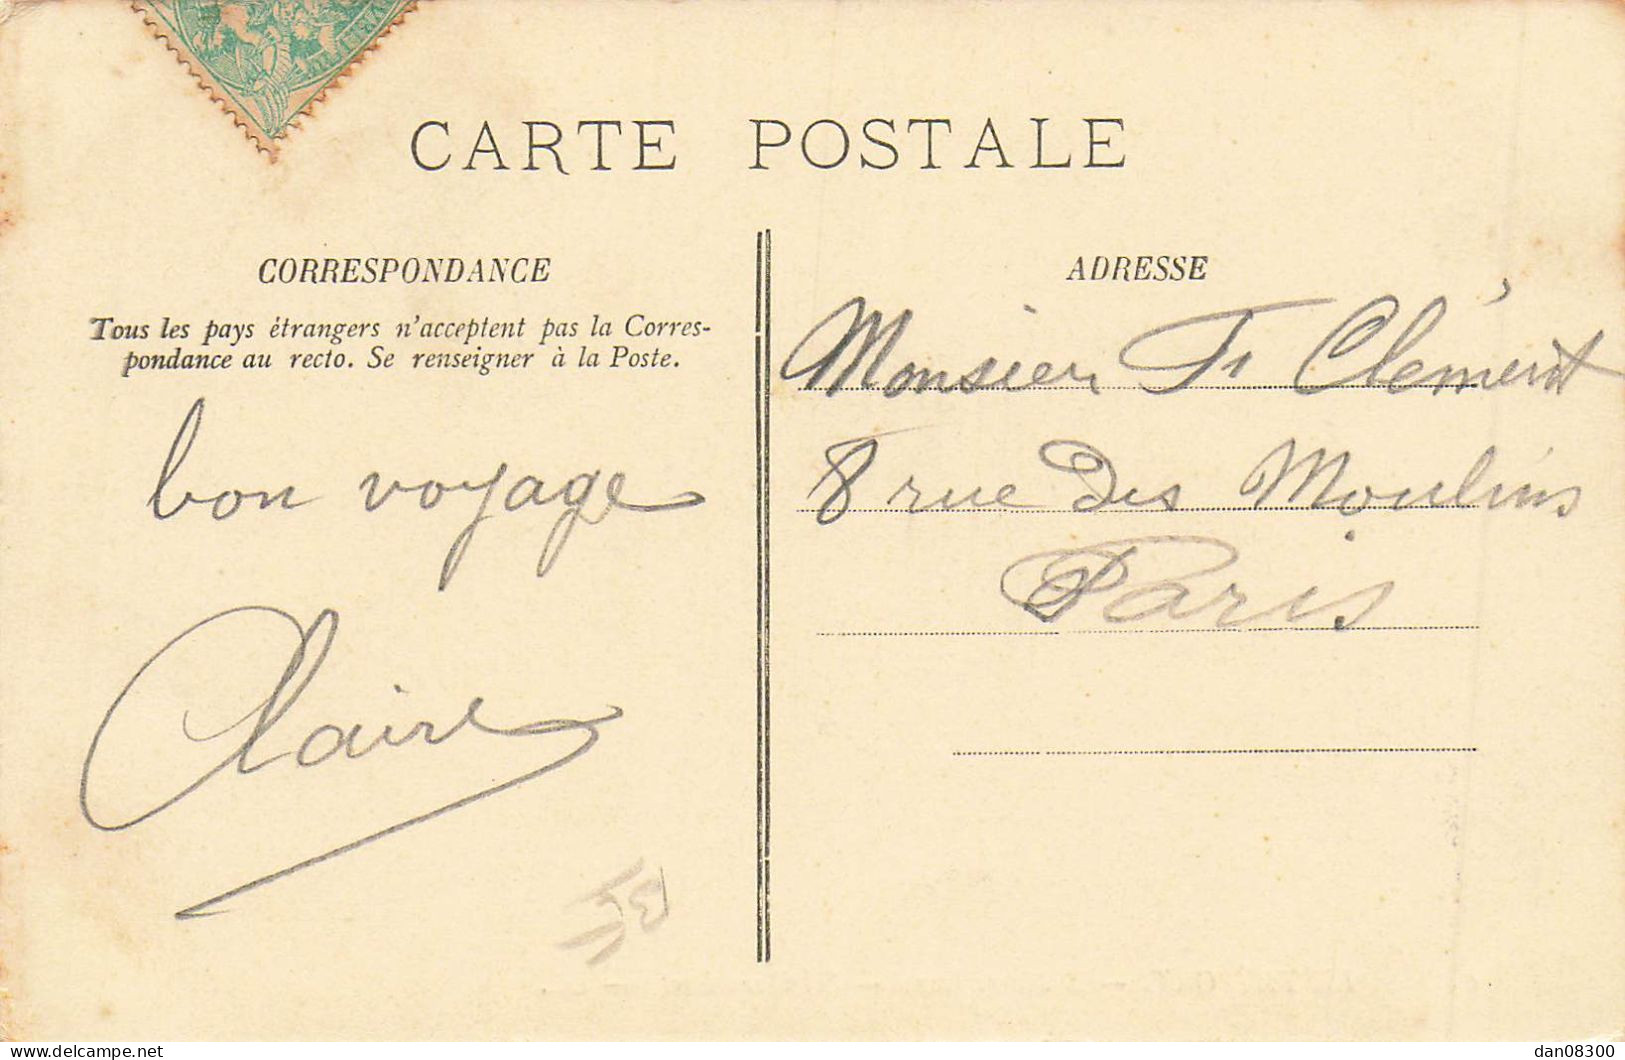 CARTE POSTALE
CORRESPONDANCE
Tous les pays étrangers n'acceptent pas la Corres-
pondance au recto. Se renseigner à la Poste.
bon voyage
Claire
ADRESSE
Monsieur Fr Clément
8 rue des Moulins
Paris
dan08300